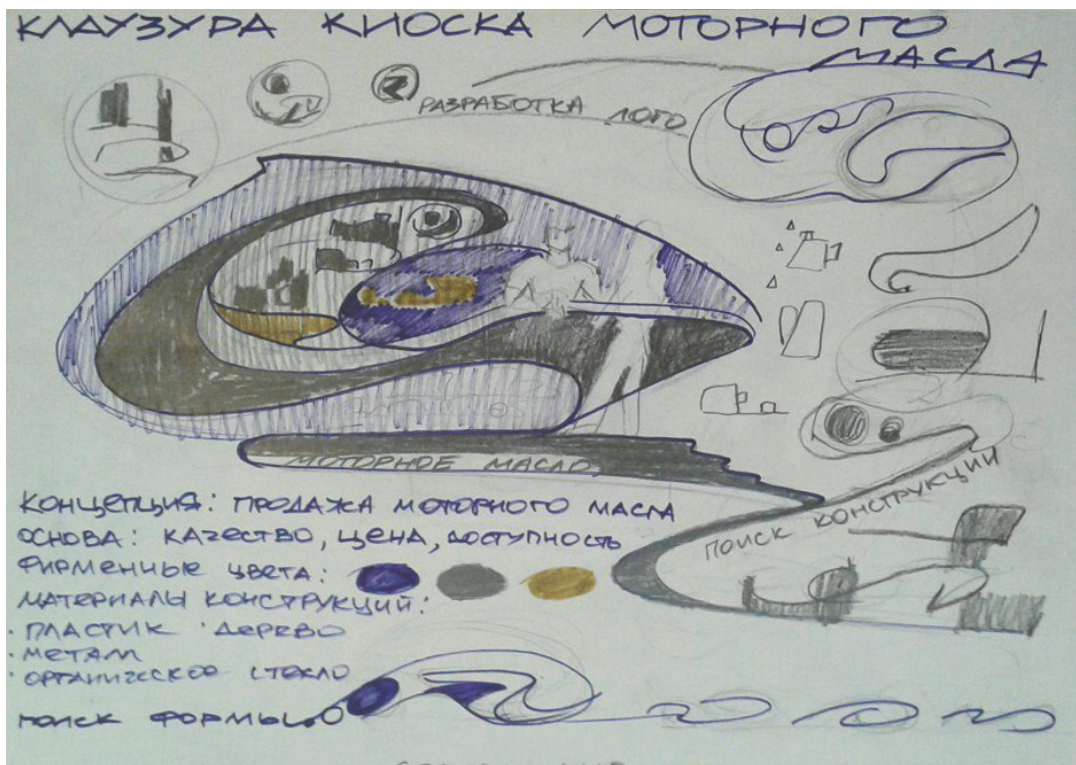 КЛАУЗУРА КИОСКА МОТОРНОГО
МАСЛА
РАЗРАБОТКА ЛОГО
МОТОРНОЕ МАСЛО
КОНЦЕПЦИЯ: ПРОДАЖА МОТОРНОГО МАСЛА
ОСНОВА: КАЧЕСТВО, ЦЕНА, ДОСТУПНОСТЬ
ФИРМЕННЫЕ ЦВЕТА:
МАТЕРИАЛЫ КОНСТРУКЦИЙ:
· ПЛАСТИК · ДЕРЕВО
· МЕТАЛ
· ОРГАНИЧЕСКОЕ СТЕКЛО
ПОИСК КОНСТРУКЦИИ
ПОИСК ФОРМЫ